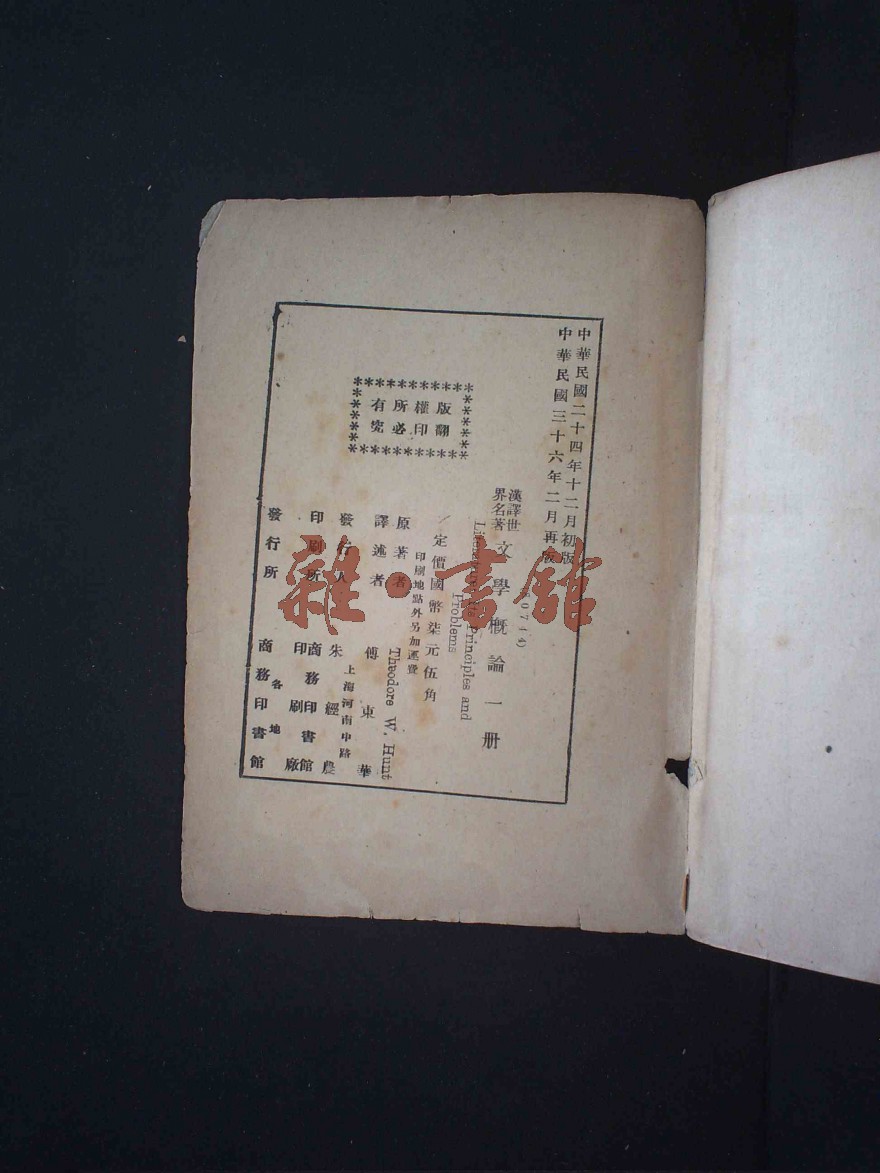 中華民國二十四年十二月初版
中華民國三十六年二月再版
漢譯世
界名著
文學概論一册
Literature Its Principles and
Problems
定價國幣柒元伍角
印刷地點外另加運費
版權所有
翻印必究
原著者 Theodore W. Hunt
譯述者 傅東華
發行人 朱經農
上海河南中路
印刷所 商務印書館
印刷廠
發行所 各地
商務印書館
雜·書館